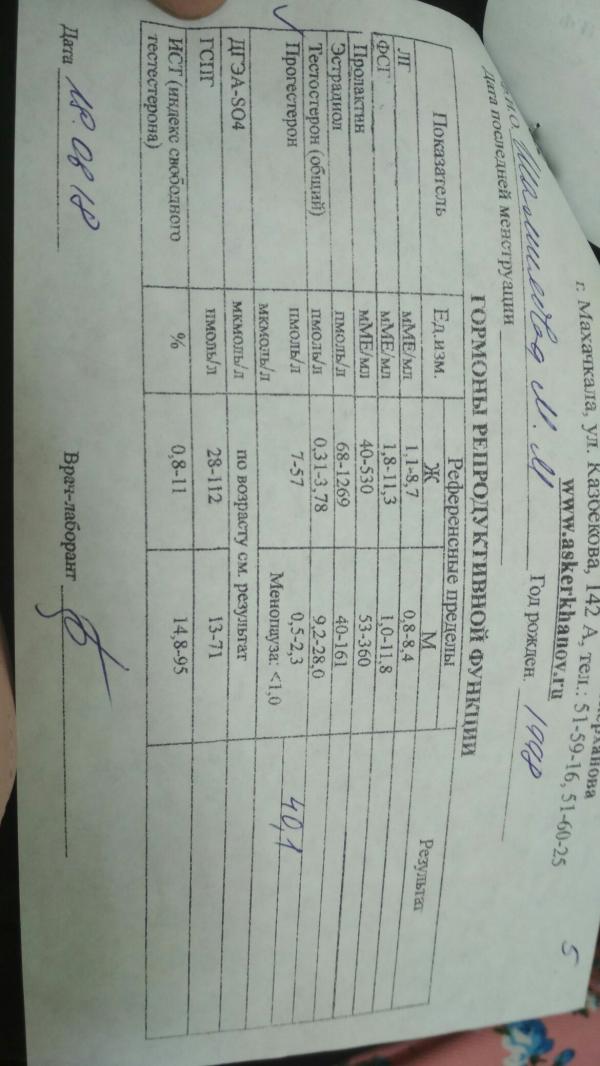 ерханова
г. Махачкала, ул. Казбекова, 142 А, тел.: 51-59-16, 51-60-25
www.askerkhanov.ru
5
М. М Год рожден. 1998
Дата последней менструации
ГОРМОНЫ РЕПРОДУКТИВНОЙ ФУНКЦИИ
Показатель Ед.изм. Референсные пределы Результат
Ж М
ЛГ мМЕ/мл 1,1-8,7 0,8-8,4
ФСГ мМЕ/мл 1,8-11,3 1,0-11,8
Пролактин мМЕ/мл 40-530 53-360
Эстрадиол пмоль/л 68-1269 40-161
Тестостерон (общий) нмоль/л 0,31-3,78 9,2-28,0
Прогестерон нмоль/л 7-57 0,5-2,3 40,1
Менопауза: <1,0
мкмоль/л
ДГЭА-SO4 мкмоль/л по возрасту см. результат
ГСПГ нмоль/л 28-112 13-71
ИСТ (индекс свободного тестестерона) % 0,8-11 14,8-95
Дата 08 18 Врач-лаборант